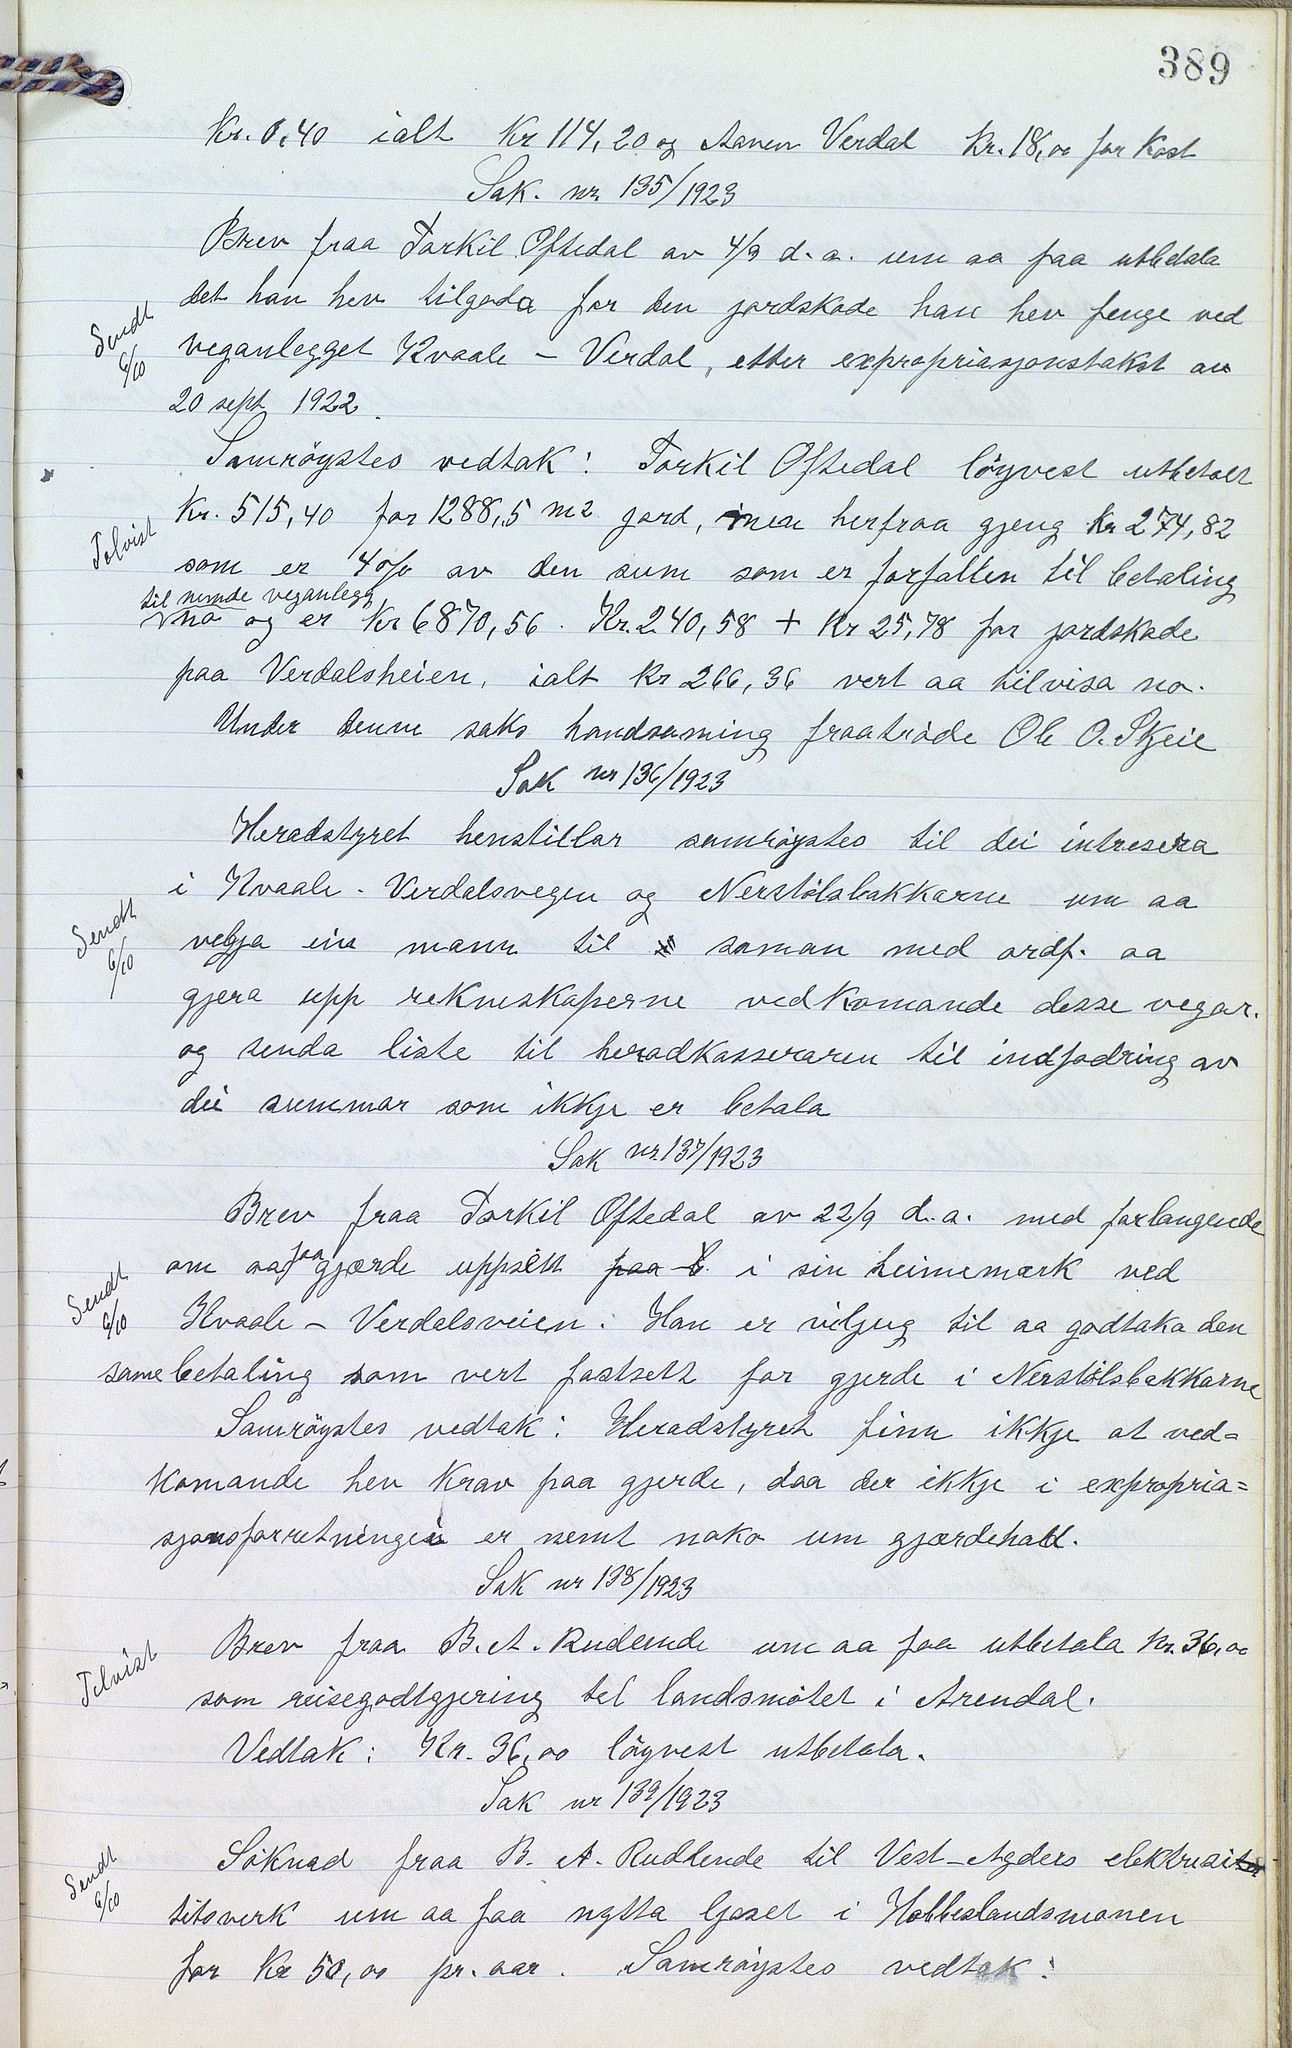 389
Kr. 0,40 ialt Kr 114,20 og Aanen Verdal Kr. 18,00 for Kost
Sak. nr. 135/1923
Brev fraa Torkil Oftedal av 4/9 d.a. um aa faa utbetala
det han hev tilgoda for den jordskade han hev fenge ved
Sendt 6/10
veganlegget Kvaale - Verdal, etter expropriasjonstakst av
20 sept 1922.
Samröystes vedtak: Torkil Oftedal löyvest utbetalt
Kr. 515,40 for 1288,5 m2 jord, men herfraa gjeng Kr 274,82
Tilvist
som er 4% av den sum som er forfallen til betaling
til nemde veganlegg
no og er Kr 6870,56. Kr. 240,58 + Kr 25,78 for jordskade
paa Verdalsheien, ialt Kr 266,36 vert aa tilvisa no.
Under denne saks handsaming fraatrǻde Ole O. Skjeie
Sak nr 136/1923
Heradstyret henstillar samröystes til dei intresera
i Kvaale - Verdalsvegen og Nerstölsbakkarne um aa
Sendt 6/10
velgja ein mann til saman med ordf. aa
gjera upp rekneskaperne vedkomande desse vegar.
og senda liste til heradkasseraren til indfodring av
dei summar som ikkje er betala
Sak nr. 137/1923
Brev fraa Torkil Oftedal av 22/9 d.a. med forlangende
om aa faa gjærde uppsett paa i sin heimemark ved
Sendt 6/10
Kvaale - Verdalsveien. Han er viljug til aa godtaka den
same betaling som vert fastsett for gjerde i Nerstölsbakkarne
Samröystes vedtak: Heradstyret finn ikkje at ved=
komande hev krav paa gjerde, daa der ikkje i expropria=
sjonsforretningen er nemt noko um gjærdehald.
Sak nr 138/1923
Brev fraa B. A. Rudlende um aa faa utbetala Kr. 36,00
Tilvist
som reisegodtgjering til landsmötet i Arendal.
Vedtak: Kr. 36,00 löyvest utbetala.
Sak nr 139/1923
Söknad fraa B. A. Rudlende til Vest-Agders elektrisi
Sendt 6/10
titsverk um aa faa nytta ljoset i Hobbeslandsmonen
for Kr 50,00 pr. aar. Samröystes vedtak: